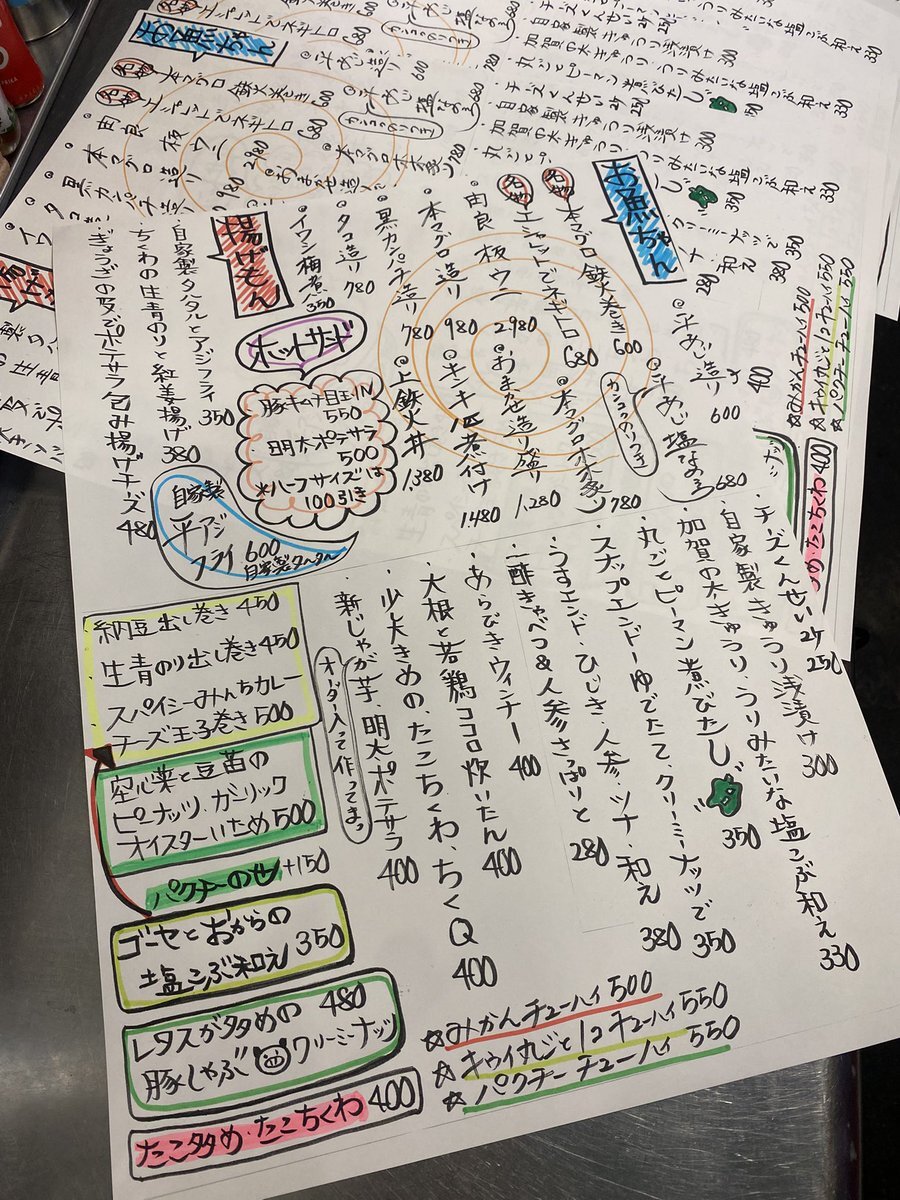 お魚ちゃん
名物 本マグロ 鉄火巻き 600
名物 エシャレットとネギトロ 680
由良 板ウニ 2980
本マグロ 造り 980
黒カンパチ 造り 780
タコ造り 780
イワシ梅煮 350
平あじ 造り 600
平あじ 塩なめろう 680
カンコのりつき
本マグロ 木家 780
おまかせ造り盛り 1,280
キンキ 一匹煮付け 1480
上鉄火丼 1,380
揚げもん
自家製タルタルとアジフライ 350
ちくわの生青のりと紅姜揚げ 380
ぎょうざの皮でポテサラ包み揚げチーズ 480
ホットサンド
豚キムチ目玉IN
550
明太ポテサラ
500
*ハーフサイズは
100引き
自家製
平アジ
フライ 600
自家製タルタル
チーズくんせい 2ケ 250
自家製 きゅうり 浅漬け 300
加賀の太きゅうり、うりみたいな塩こぶ和え 330
丸ごとピーマン 煮びたし 350
スナップエンドーゆでたて、クリーミーナッツで 350
うすエンドー、ひじき、人参、ツナ、和え 380
酢きゃべつ&人参さっぱりと 280
あらびきウィンナー 400
大根と若鶏ココロ炊いたん 400
少し大きめの、たこちくわ、ちくQ 400
新じゃが芋、明太ポテサラ 400
オーダー入って作ってまっ
納豆出し巻き 450
生青のり出し巻き 450
スパイシーみんちカレー
チーズ玉子巻き 500
空心菜と豆苗の
ピーナッツ、ガーリック
オイスターいため 500
パクチーのせ +150
ゴーヤとおからの
塩こぶ和え 350
レタスが多めの 480
豚しゃぶ クリーミーナッツ
たこ多め・たこちくわ 400
☆みかんチューハイ 500
☆キウイ丸ごと1コチューハイ 550
☆パクチーチューハイ 550